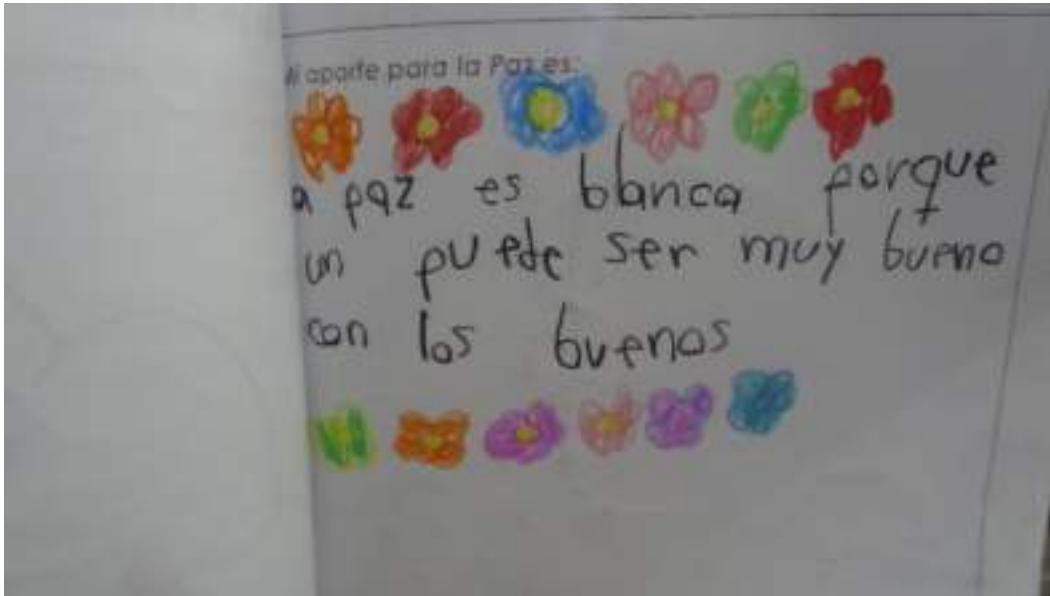 Mi aporte para la Paz es:
a paz es blanca porque
un puede ser muy bueno
con los buenos